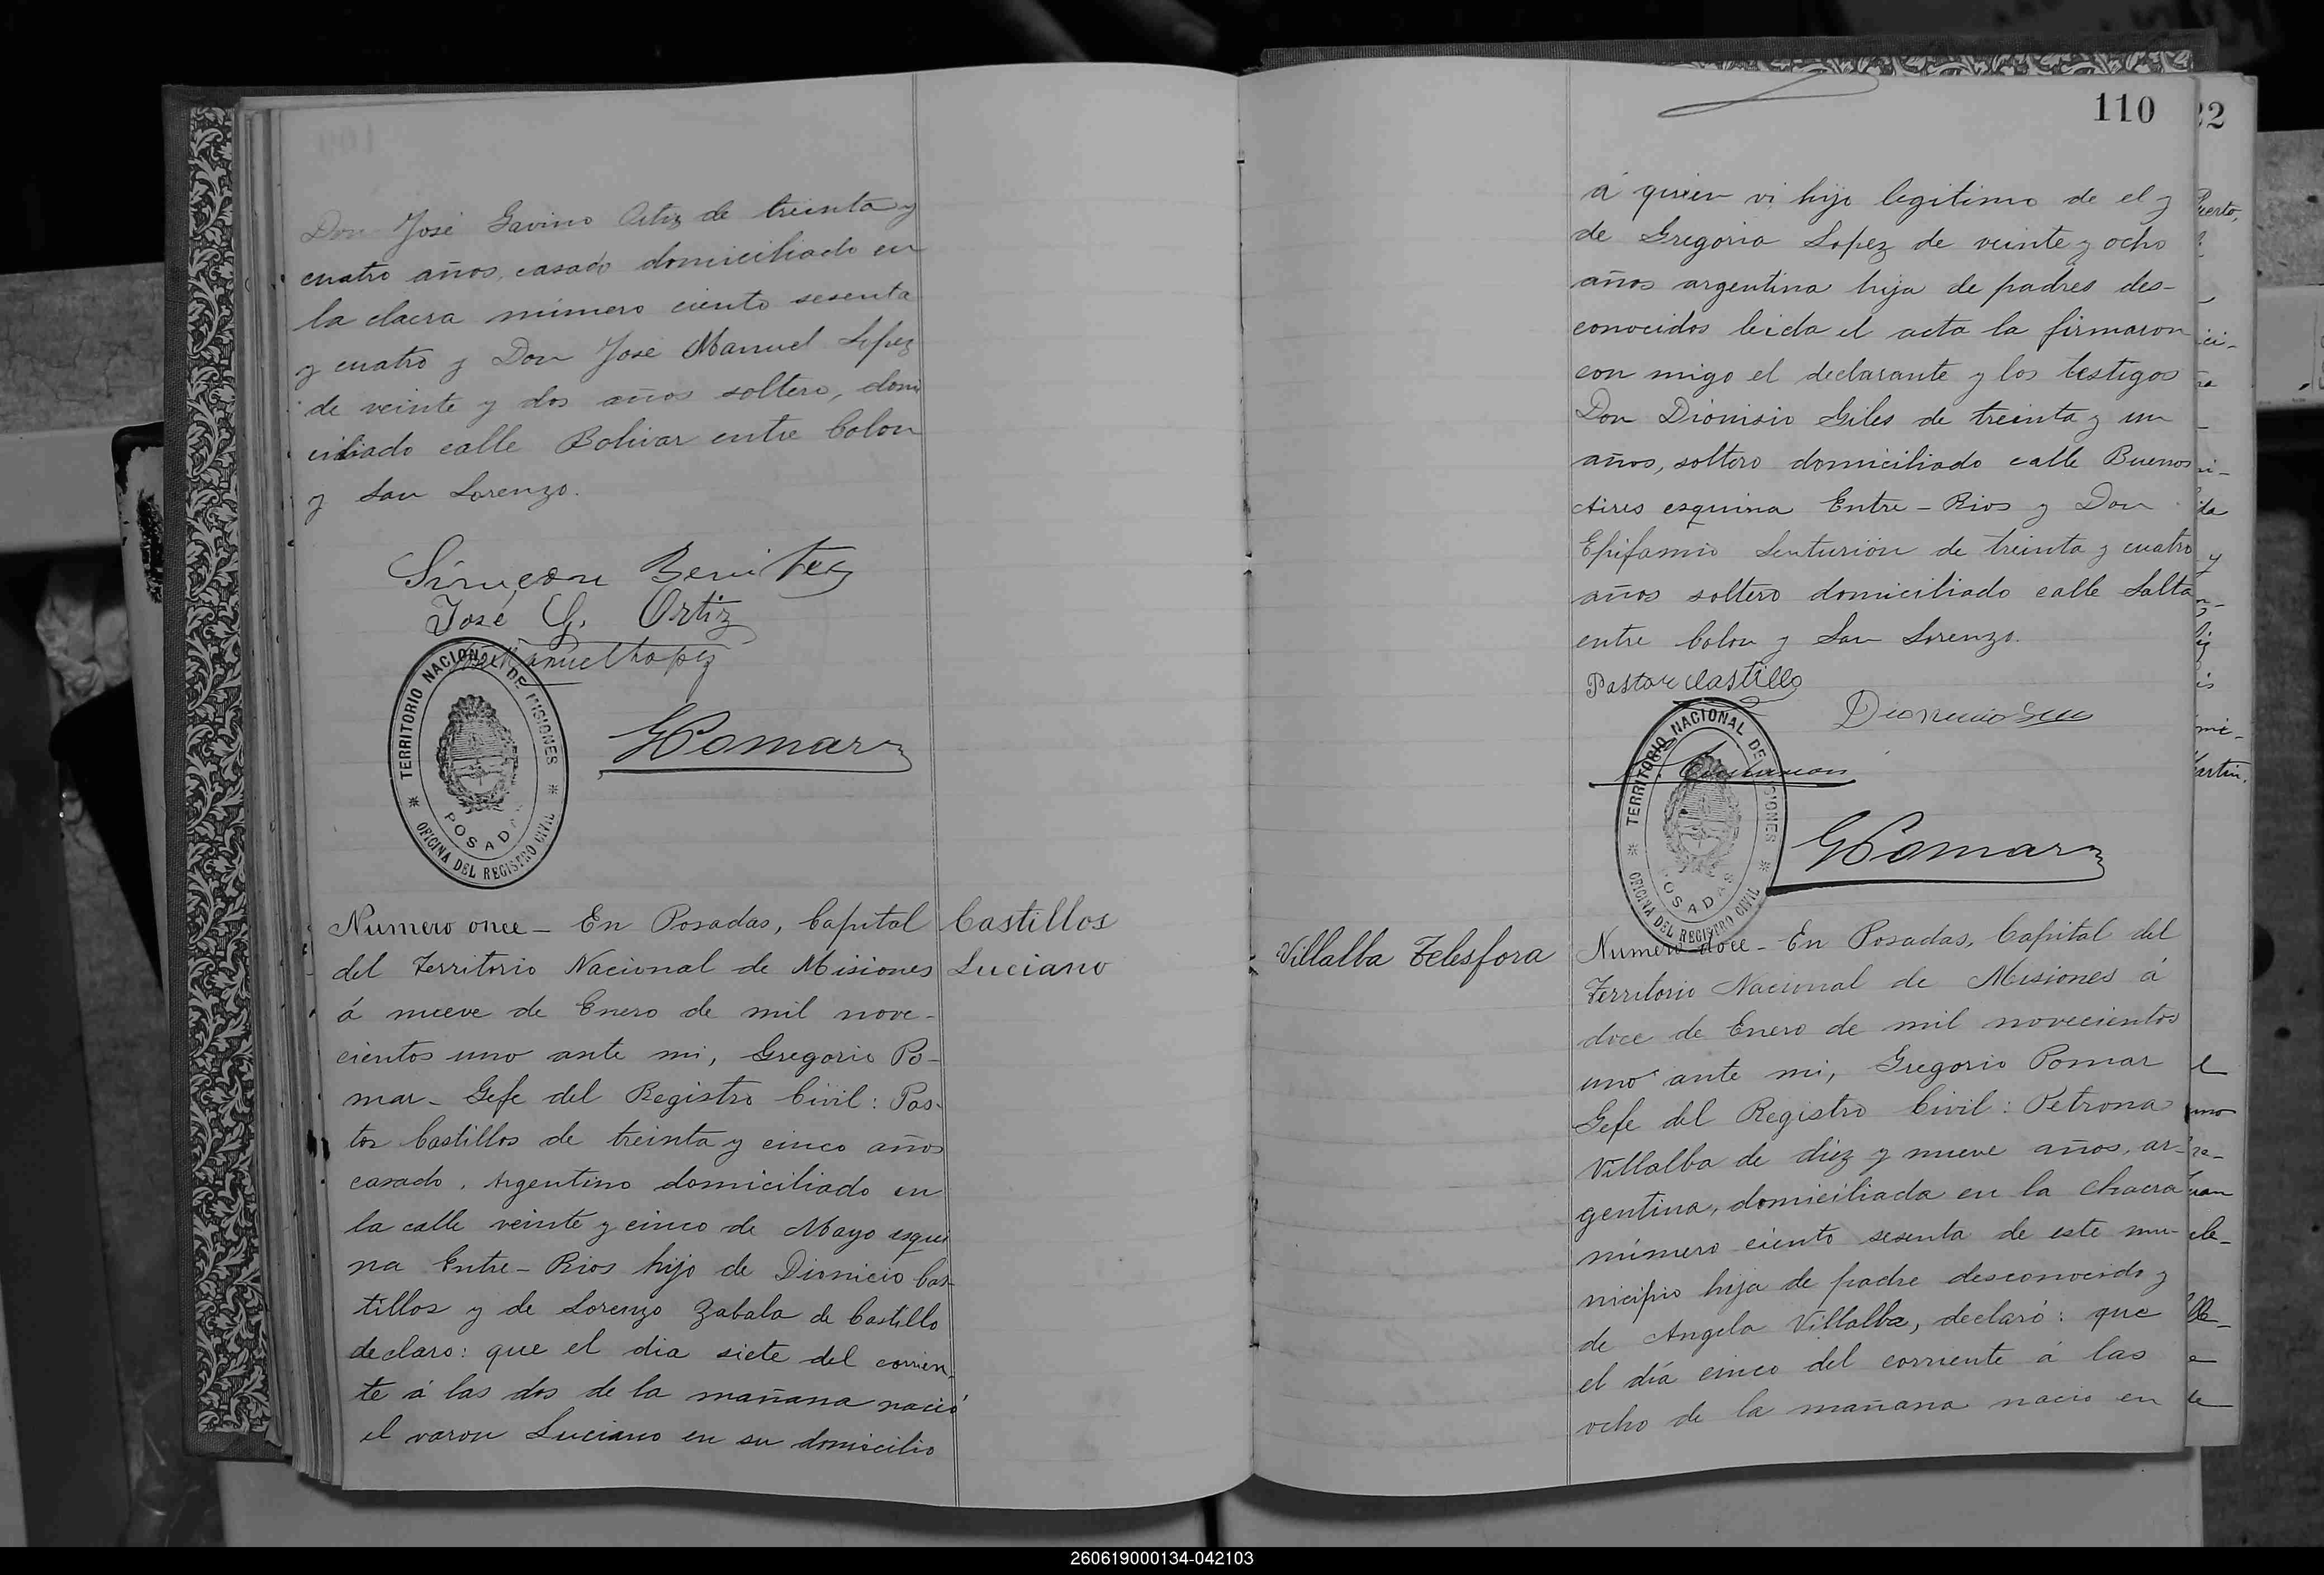 Don José Gavino Ortiz de treinta y
cuatro años, casado domiciliado en
la chacra número ciento sesenta
y cuatro y Don José Manuel Lopez
de veinte y dos años soltero, domi
ciliado calle Bolivar entre Colon
y San Lorenzo.
Simeon Benitez
José G. Ortiz
José Manuel Lopez
TERRITORIO NACIONAL DE MISIONES
POSADAS
OFICINA DEL REGISTRO CIVIL
GPomar
Numero once - En Posadas, Capital
del Territorio Nacional de Misiones
á nueve de Enero de mil nove-
cientos uno ante mi, Gregorio Po-
mar - Gefe del Registro Civil: Pas-
tor Castillos de treinta y cinco años
casado, Argentino domiciliado en
la calle veinte y cinco de Mayo esqui
na Entre-Rios hijo de Dionicio Cas-
tillos y de Lorenzo Zabala de Castillo
declaro: que el dia siete del corrien-
te á las dos de la mañana nació
el varon Luciano en su domicilio
Castillos
Luciano
110
á quien vi hijo legitimo de el y
de Gregoria Lopez de veinte y ocho
años argentina hija de padres des-
conocidos leida el acta la firmaron
con migo el declarante y los testigos
Don Dionisio Giles de treinta y un
años, soltero domiciliado calle Buenos
Aires esquina Entre-Rios y Don
Epifamio Senturión de treinta y cuatro
años soltero domiciliado calle Salta
entre Colon y San Lorenzo.
Pastor Castillo
TERRITORIO NACIONAL DE MISIONES
POSADAS
OFICINA DEL REGISTRO CIVIL
GPomar
Villalba Telesfora
Numero doce - En Posadas, Capital del
Territorio Nacional de Misiones á
doce de Enero de mil novecientos
uno ante mi, Gregorio Pomar
Gefe del Registro Civil: Petrona
Villalba de diez y nueve años, ar-
gentina, domiciliada en la chacra
número ciento sesenta de este mu-
nicipio hija de padre desconocido y
de Angela Villalba, declaró: que
el día cinco del corriente á las
ocho de la mañana nacio en
260619000134-042103